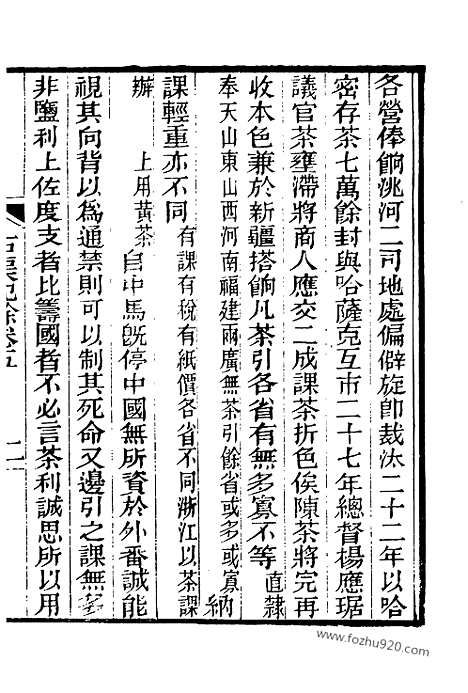 各營俸餉洮河二司地處偏僻旋卽裁汰二十二年以哈
密存茶七萬餘封與哈薩克互市二十七年總督楊應琚
議官茶壅滯將商人應交二成課茶折色俟陳茶將完再
收本色兼於新疆搭餉凡茶引各省有無多寡不等直隸
奉天山東山西河南福建兩廣無茶引餘省或多或寡納
課輕重亦不同有課有稅有紙價各省不同浙江以茶課
辦 上用黃茶自中馬旣停中國無所資於外番誠能
視其向背以爲通禁則可以制其死命又邊引之課無
非鹽利上佐度支者比籌國者不必言茶利誠思所以用
卷五
二
www.fozhu920.com